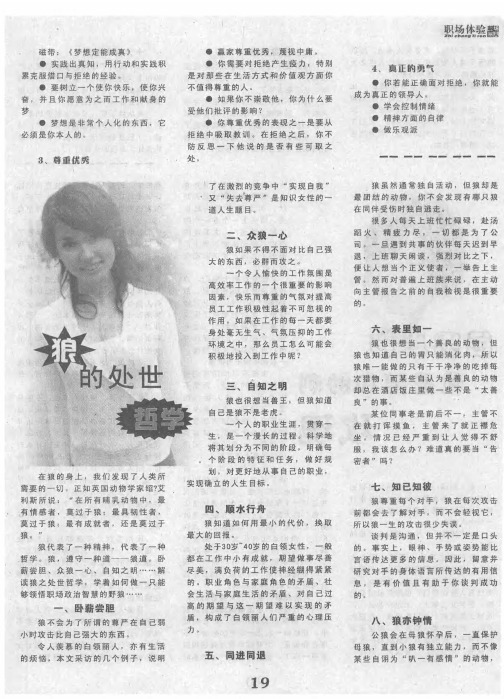 职场体验
磁带：《梦想定能成真》
● 实践出真知，用行动和实践积
累克服借口与拒绝的经验。
● 要树立一个使你快乐，使你兴
奋，并且你愿意为之而工作和献身的
梦
● 梦想是非常个人化的东西，它
必须是你本人的。
3、尊重优秀
● 赢家尊重优秀，蔑视中庸。
● 你需要对拒绝产生疫力，特别
是对那些在生活方式和价值观方面你
不值得尊重的人。
● 如果你不崇敬他，你为什么要
受他们批评的影响？
● 你尊重优秀的表现之一是要从
拒绝中吸取教训，在拒绝之后，你不
防反思一下他说的是否有些可取之
处。
4、真正的勇气
● 你若能正确面对拒绝，你就能
成为真正的领导人。
● 学会控制情绪
● 精神方面的自律
● 做乐观派
狼
的处世
哲学
在狼的身上，我们发现了人类所
需要的一切，正如英国动物学家绍?艾
利斯所说，“在所有哺乳动物中，最
有情感者，莫过于狼；最具韧性者，
莫过于狼；最有成就者，还是莫过于
狼。”
狼代表了一种精神，代表了一种
哲学。狼，遵守一种道——狼道。卧
薪尝胆、众狼一心、自知之明……解
读狼之处世哲学，学着如何做一只能
够领悟职场政治智慧的野狼……
一、卧薪尝胆
狼不会为了所谓的尊严在自己弱
小时攻击比自己强大的东西。
令人羡慕的白领丽人，亦有生活
的烦恼，本文采访的几个例子，说明
了在激烈的竞争中“实现自我”
又“失去尊严”是知识女性的一
道人生题目。
二、众狼一心
狼如果不得不面对比自己强
大的东西，必群而攻之。
一个令人愉快的工作氛围是
高效率工作的一个很重要的影响
因素，快乐而尊重的气氛对提高
员工工作积极性起着不可忽视的
作用。如果在工作的每一天都要
身处毫无生气、气氛压抑的工作
环境之中，那么员工怎么可能会
积极地投入到工作中呢？
三、自知之明
狼也很想当兽王，但狼知道
自己是狼不是老虎。
一个人的职业生涯，贯穿一
生，是一个漫长的过程。科学地
将其划分为不同的阶段，明确每
个阶段的特征和任务，做好规
划，对更好地从事自己的职业，
实现确立的人生目标。
四、顺水行舟
狼知道如何用最小的代价，换取
最大的回报。
处于30岁~40岁的白领女性，一般
都在工作中小有成就，期望做事尽善
尽美，满负荷的工作使神经绷得紧紧
的，职业角色与家庭角色的矛盾、社
会生活与家庭生活的矛盾、对自己过
高的期望与这一期望难以实现的矛
盾，构成了白领丽人们严重的心理压
力。
五、同进同退
狼虽然通常独自活动，但狼却是
最团结的动物，你不会发现有哪只狼
在同伴受伤时独自逃走。
很多人每天上班忙忙碌碌，赴汤
蹈火、精疲力尽，一切都是为了公
司。一旦遇到共事的伙伴每天迟到早
退，上班聊天闲谈，强烈对比之下，
便让人想当个正义使者，一举告上主
管。然而对普遍上班族来说，在主动
向主管报告之前的自我检视是很重要
的。
六、表里如一
狼也很想当一个善良的动物，但
狼也知道自己的胃只能消化肉，所以
狼唯一能做的只有干干净净的吃掉每
次猎物，而某些自认为是善良的动物
却总在酒店饭庄里做一些不是“太善
良”的事。
某位同事老是前后不一，主管不
在就打诨摸鱼，主管来了就正襟危
坐，情况已经严重到让人觉得不舒
服，我该怎么办？难道真的要当“告
密者”吗？
七、知已知彼
狼尊重每个对手，狼在每次攻击
前都会去了解对手，而不会轻视它，
所以狼一生的攻击很少失误。
谈判是沟通，但并不一定是口头
的。事实上，眼神、手势或姿势能比
言语传达更多的信息。因此，留意并
研究对手的身体语言所传达的有用信
息，是有价值且有助于你谈判成功
的。
八、狼亦钟情
公狼会在母狼怀孕后，一直保护
母狼，直到小狼有独立能力，而不像
某些自诩为“趴一有感情”的动物，
19